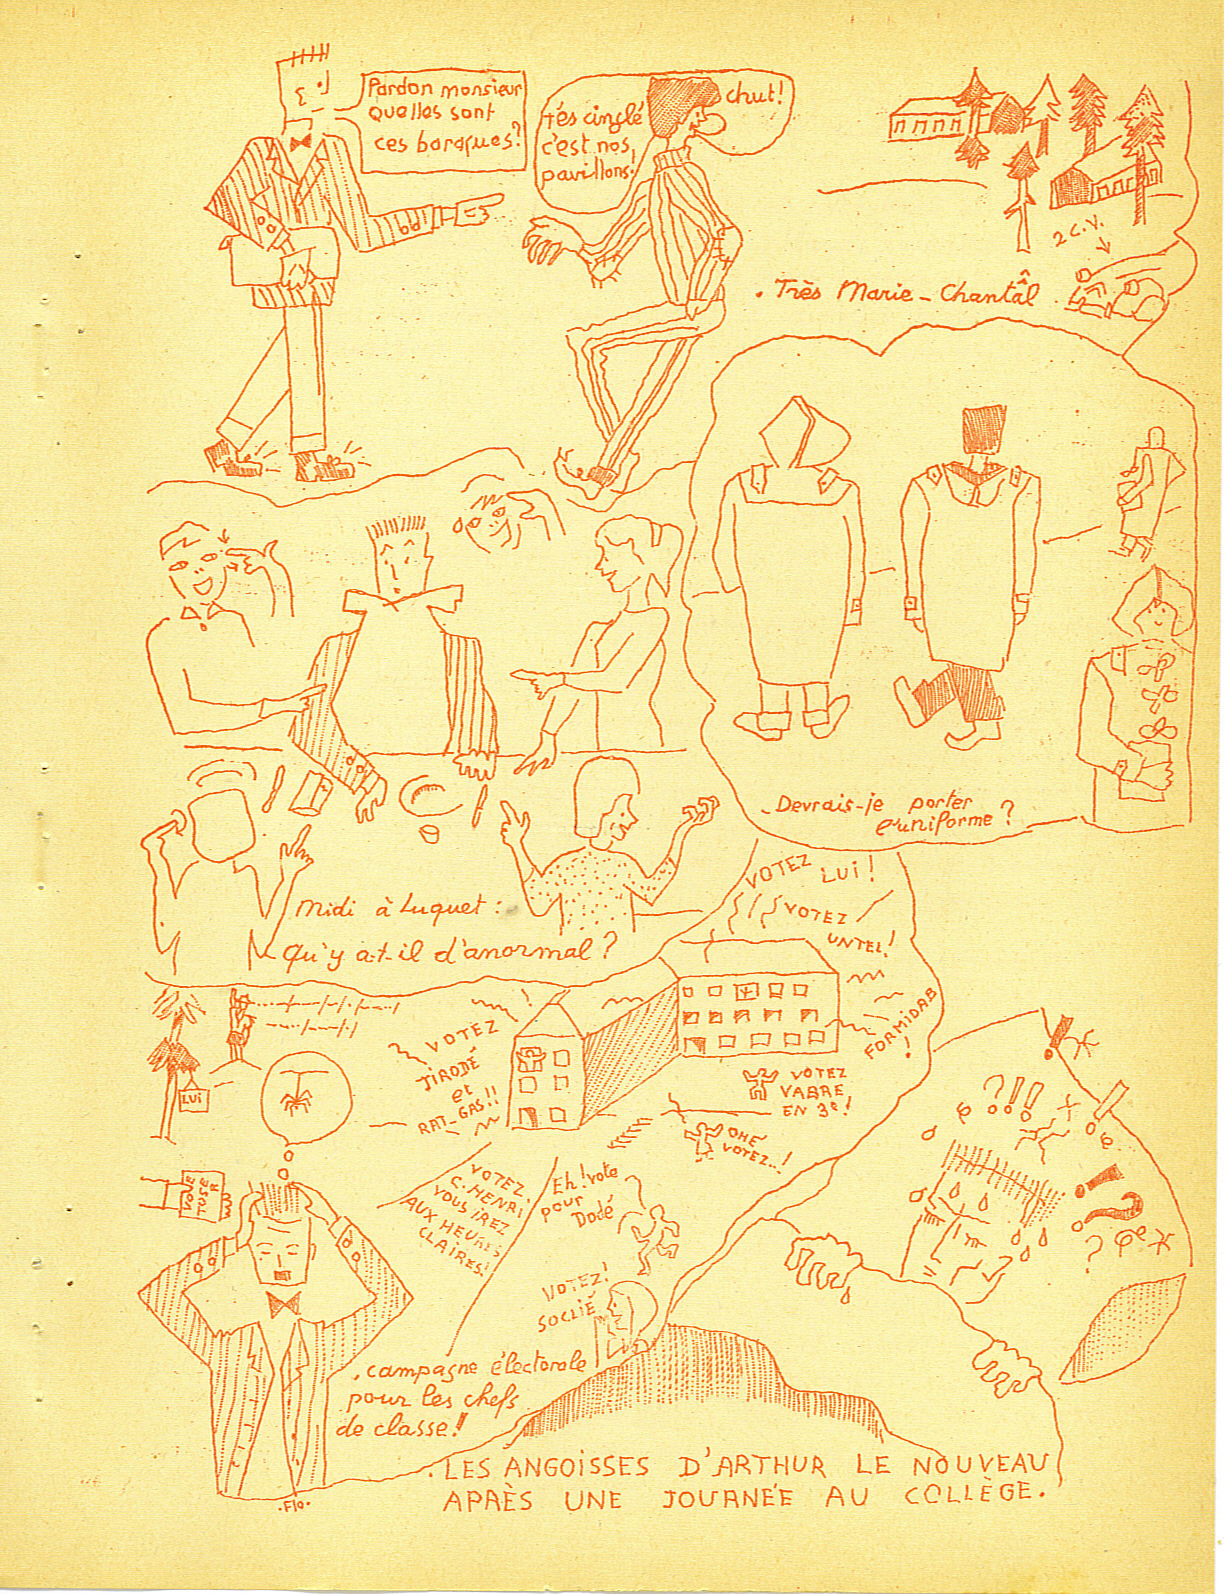 Pardon monsieur
quelles sont
ces baraques?
t'és cinglé
c'est nos
pavillons!
chut!
2 C.V.
. Très Marie-Chantâl
. Devrais-je porter
l'uniforme ?
Midi à Luquet :
Qu'y a-t-il d'anormal ?
VOTEZ
LUI !
VOTEZ
UNTEL!
FORMIDAB
!
VOTEZ
JIRODÉ
et
RAT-GAS!!
VOTEZ
VABRE
EN 3e!
OHÉ
VOTEZ...!
LUI
VOTEZ
C. HENRI
VOUS IREZ
AUX HEURES
CLAIRES!
Eh! vote
pour
Dodé
VOTEZ!
SOCLIÉ
. campagne électorale
pour les chefs
de classe!!
. LES ANGOISSES D'ARTHUR LE NOUVEAU
APRÈS UNE JOURNÉE AU COLLÈGE.
.Flo.